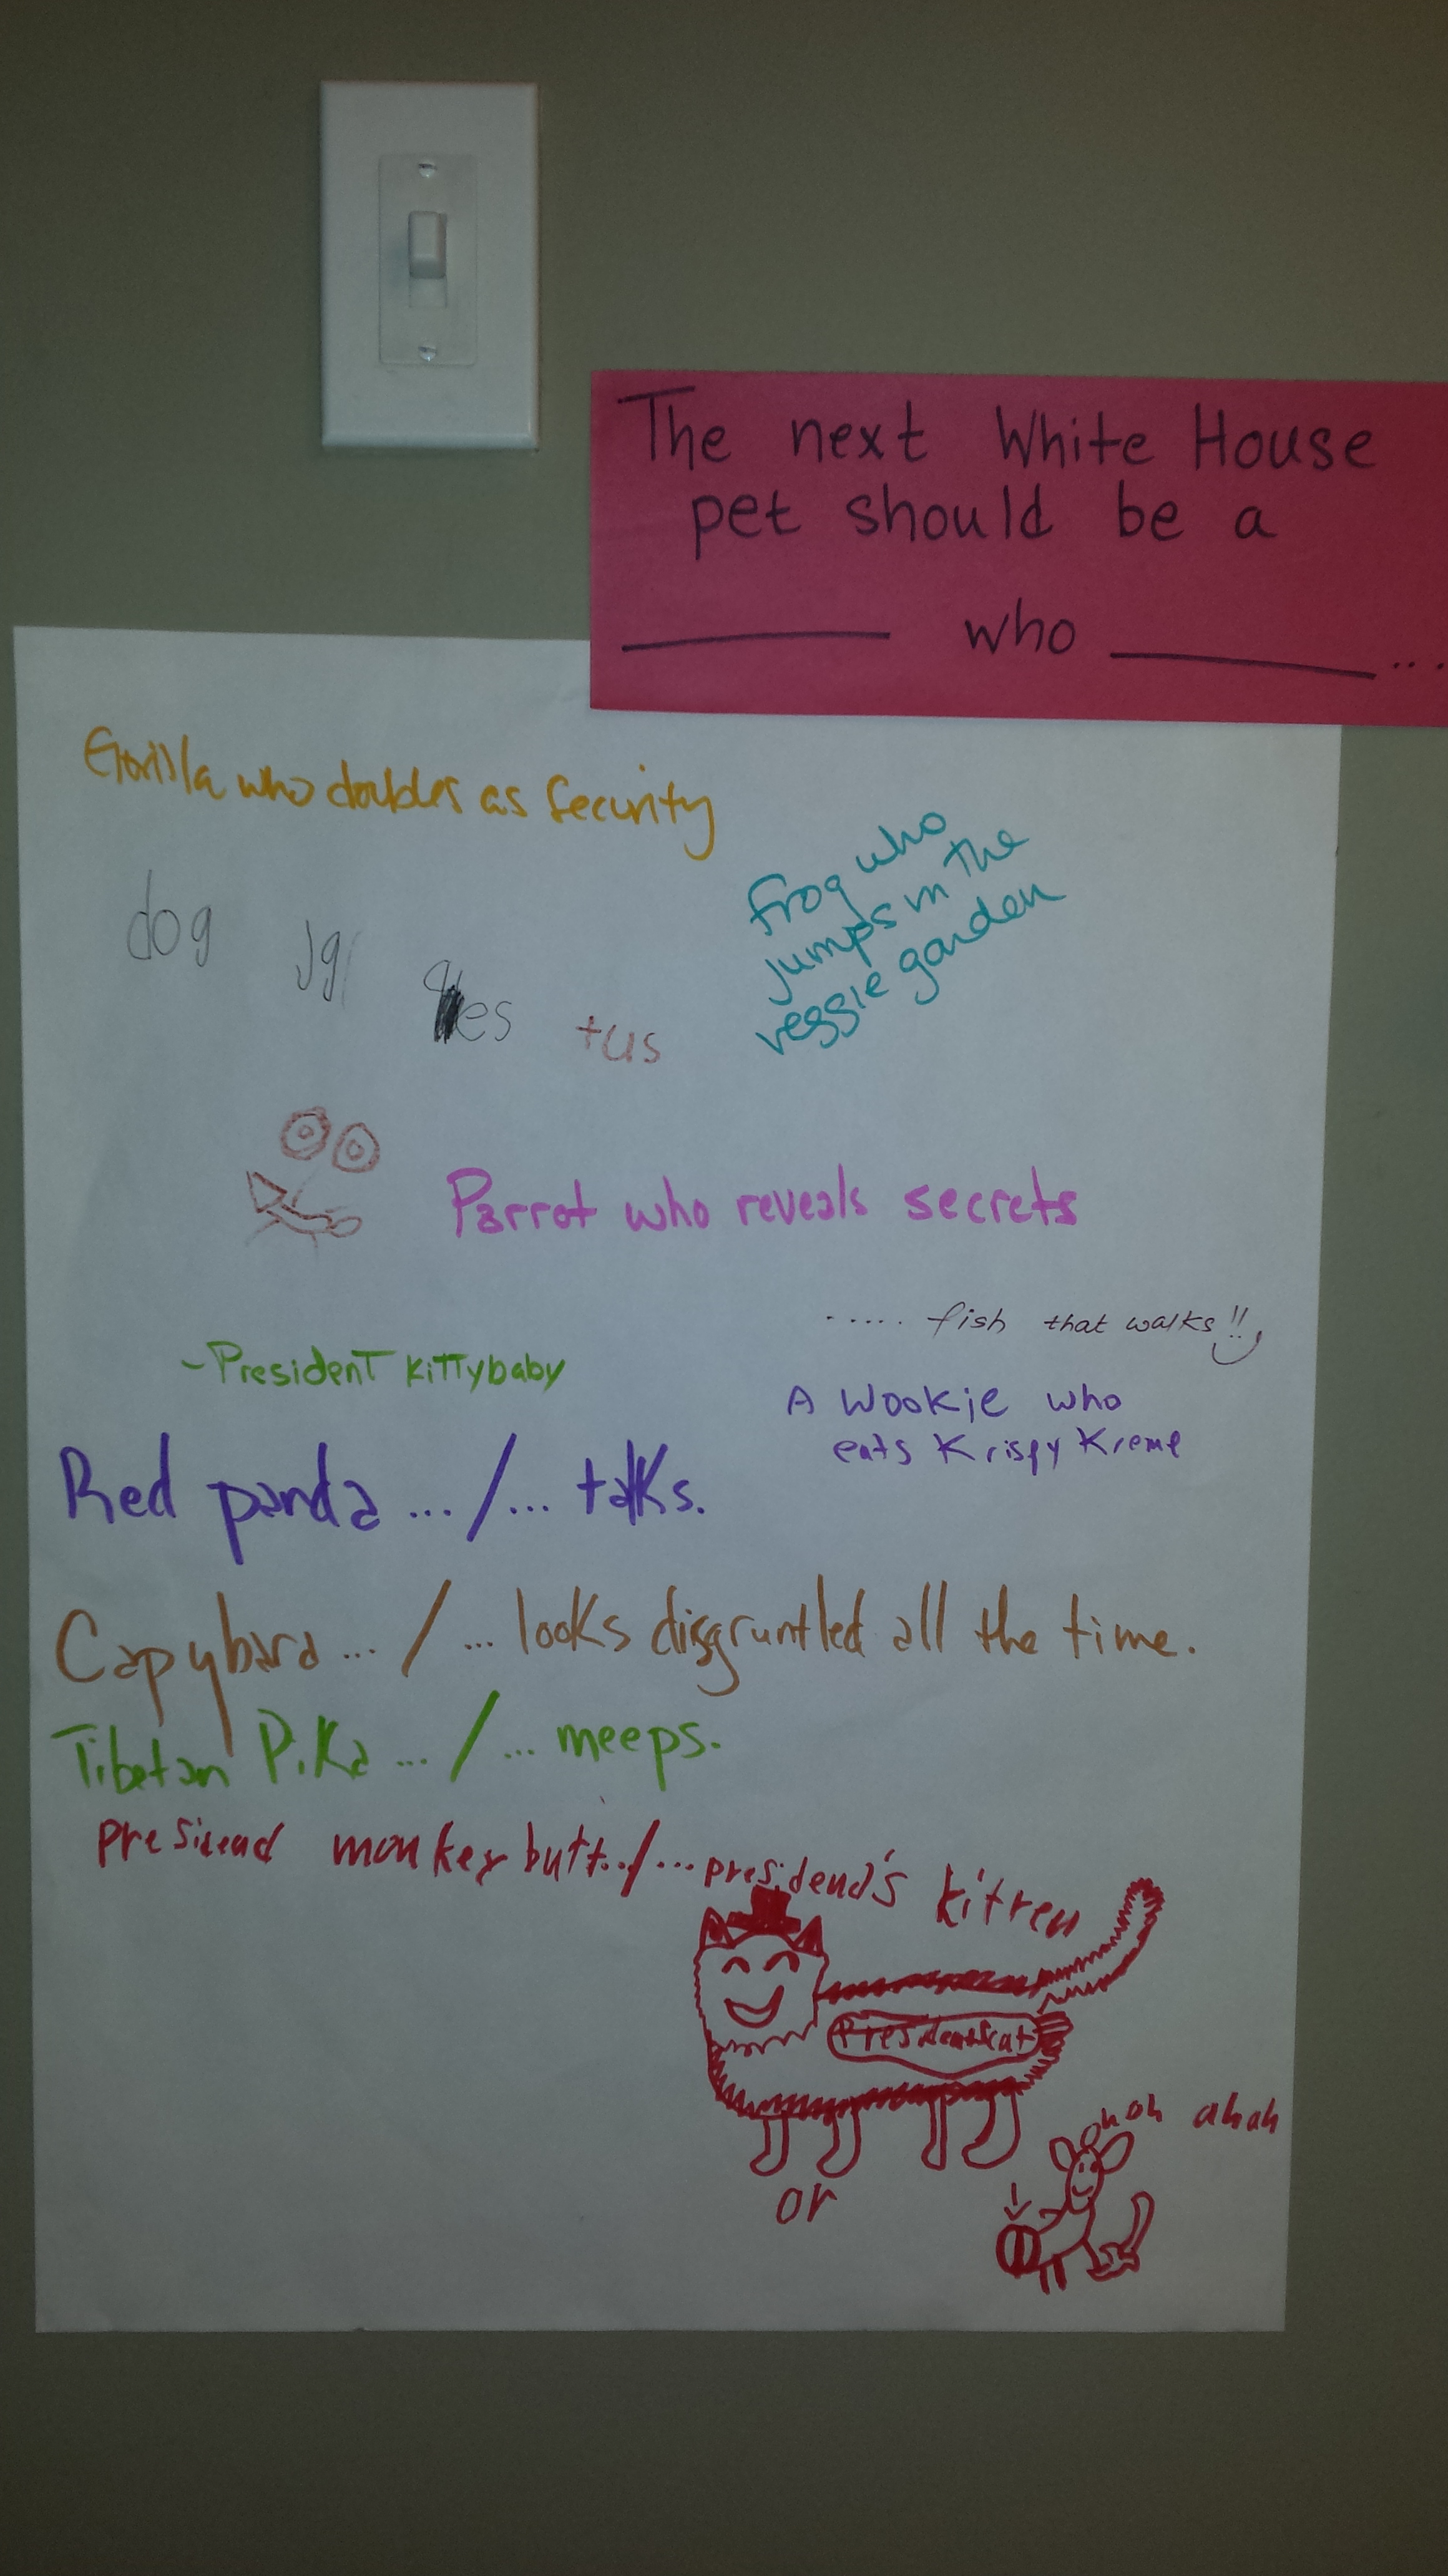 The next White House
pet should be a
who ...
Gorilla who doubles as security
dog
frog who
jumps in the
veggie garden
tus
Parrot who reveals secrets
..... fish that walks!!
-President kittybaby
A Wookie who
eats Krispy Kreme
Red panda .../... talks.
Capybara .../... looks disgruntled all the time.
Tibetan Pika .../... meeps.
monkey butt../...
or
ohoh ahah